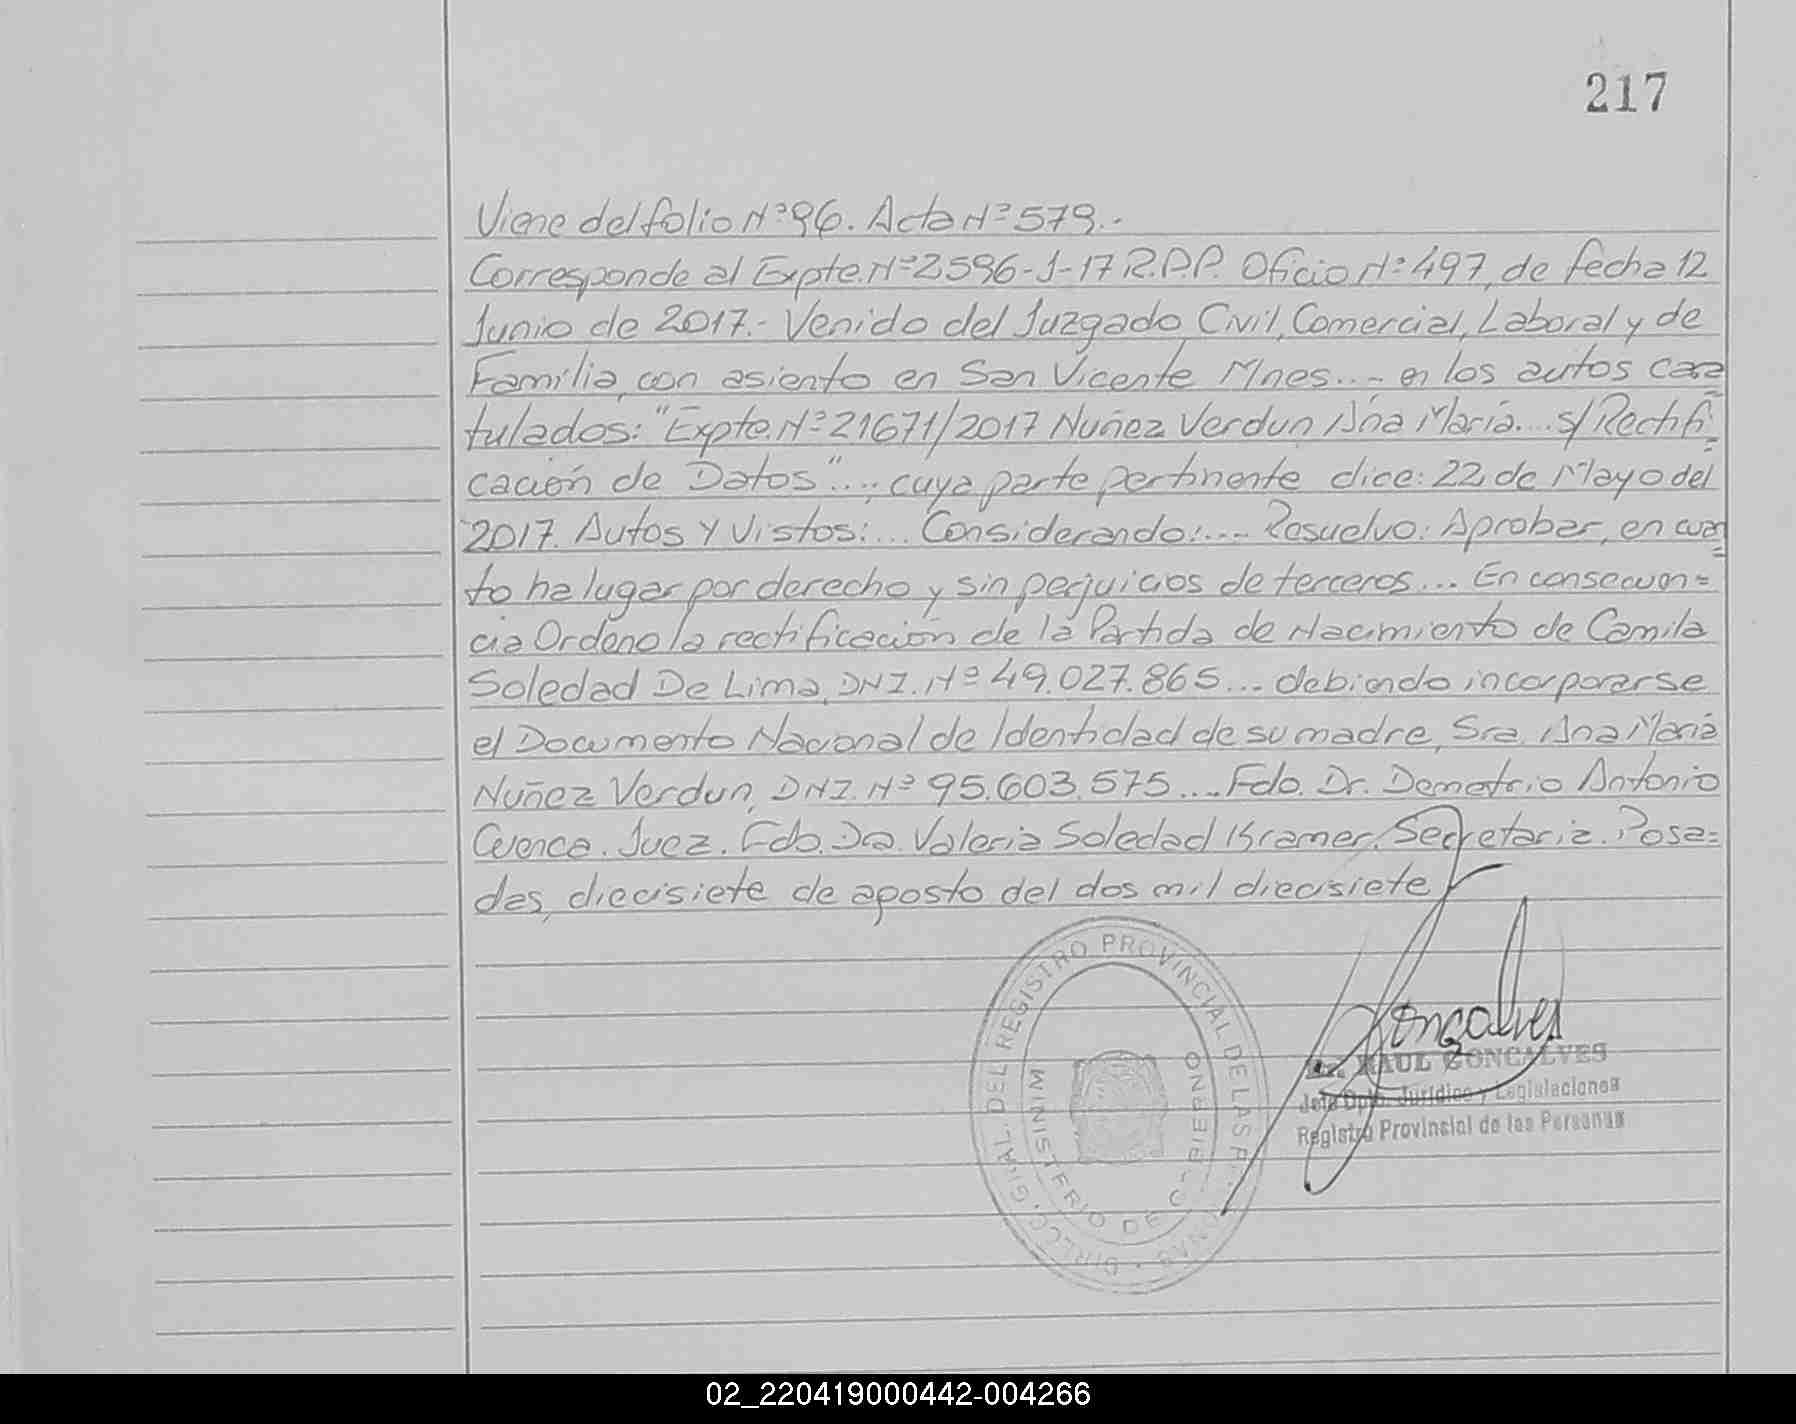 217
Viene del folio Nº 96. Acta Nº 579.-
Corresponde al Expte. Nº 2596-J-17 R.P.P. Oficio Nº 497, de fecha 12
Junio de 2017.- Venido del Juzgado Civil, Comercial, Laboral y de
Familia, con asiento en San Vicente Mnes...- en los autos cara
tulados: "Expte. Nº 21671/2017 Nuñez Verdun Ana María.... s/Rectifi=
cación de Datos"...; cuya parte pertinente dice: 22, de Mayo del
2017. Autos y Vistos:... Considerando:.... Resuelvo: Aprobar, en cuan=
to ha lugar por derecho y sin perjuicios de terceros... En consecuen=
cia Ordeno la rectificación de la Partida de Nacimiento de Camila
Soledad De Lima, DNI. Nº 49.027.865... debiendo incorporarse
el Documento Nacional de Identidad de su madre, Sra. Ana María
Nuñez Verdun, DNI. Nº 95.603.575.... Fdo. Dr. Demetrio Antonio
Cuenca. Juez. Fdo. Dra. Valeria Soledad Kramer. Secretaria. Posa=
das, diecisiete de agosto del dos mil diecisiete
DIRECC. GRAL. DEL REGISTRO PROVINCIAL DE LAS PERSONAS
MINISTERIO DE GOBIERNO
Gonçalves
Dr. RAUL GONCALVES
Jefe Dpto. Jurídico y Legislaciones
Registro Provincial de las Personas
02_220419000442-004266